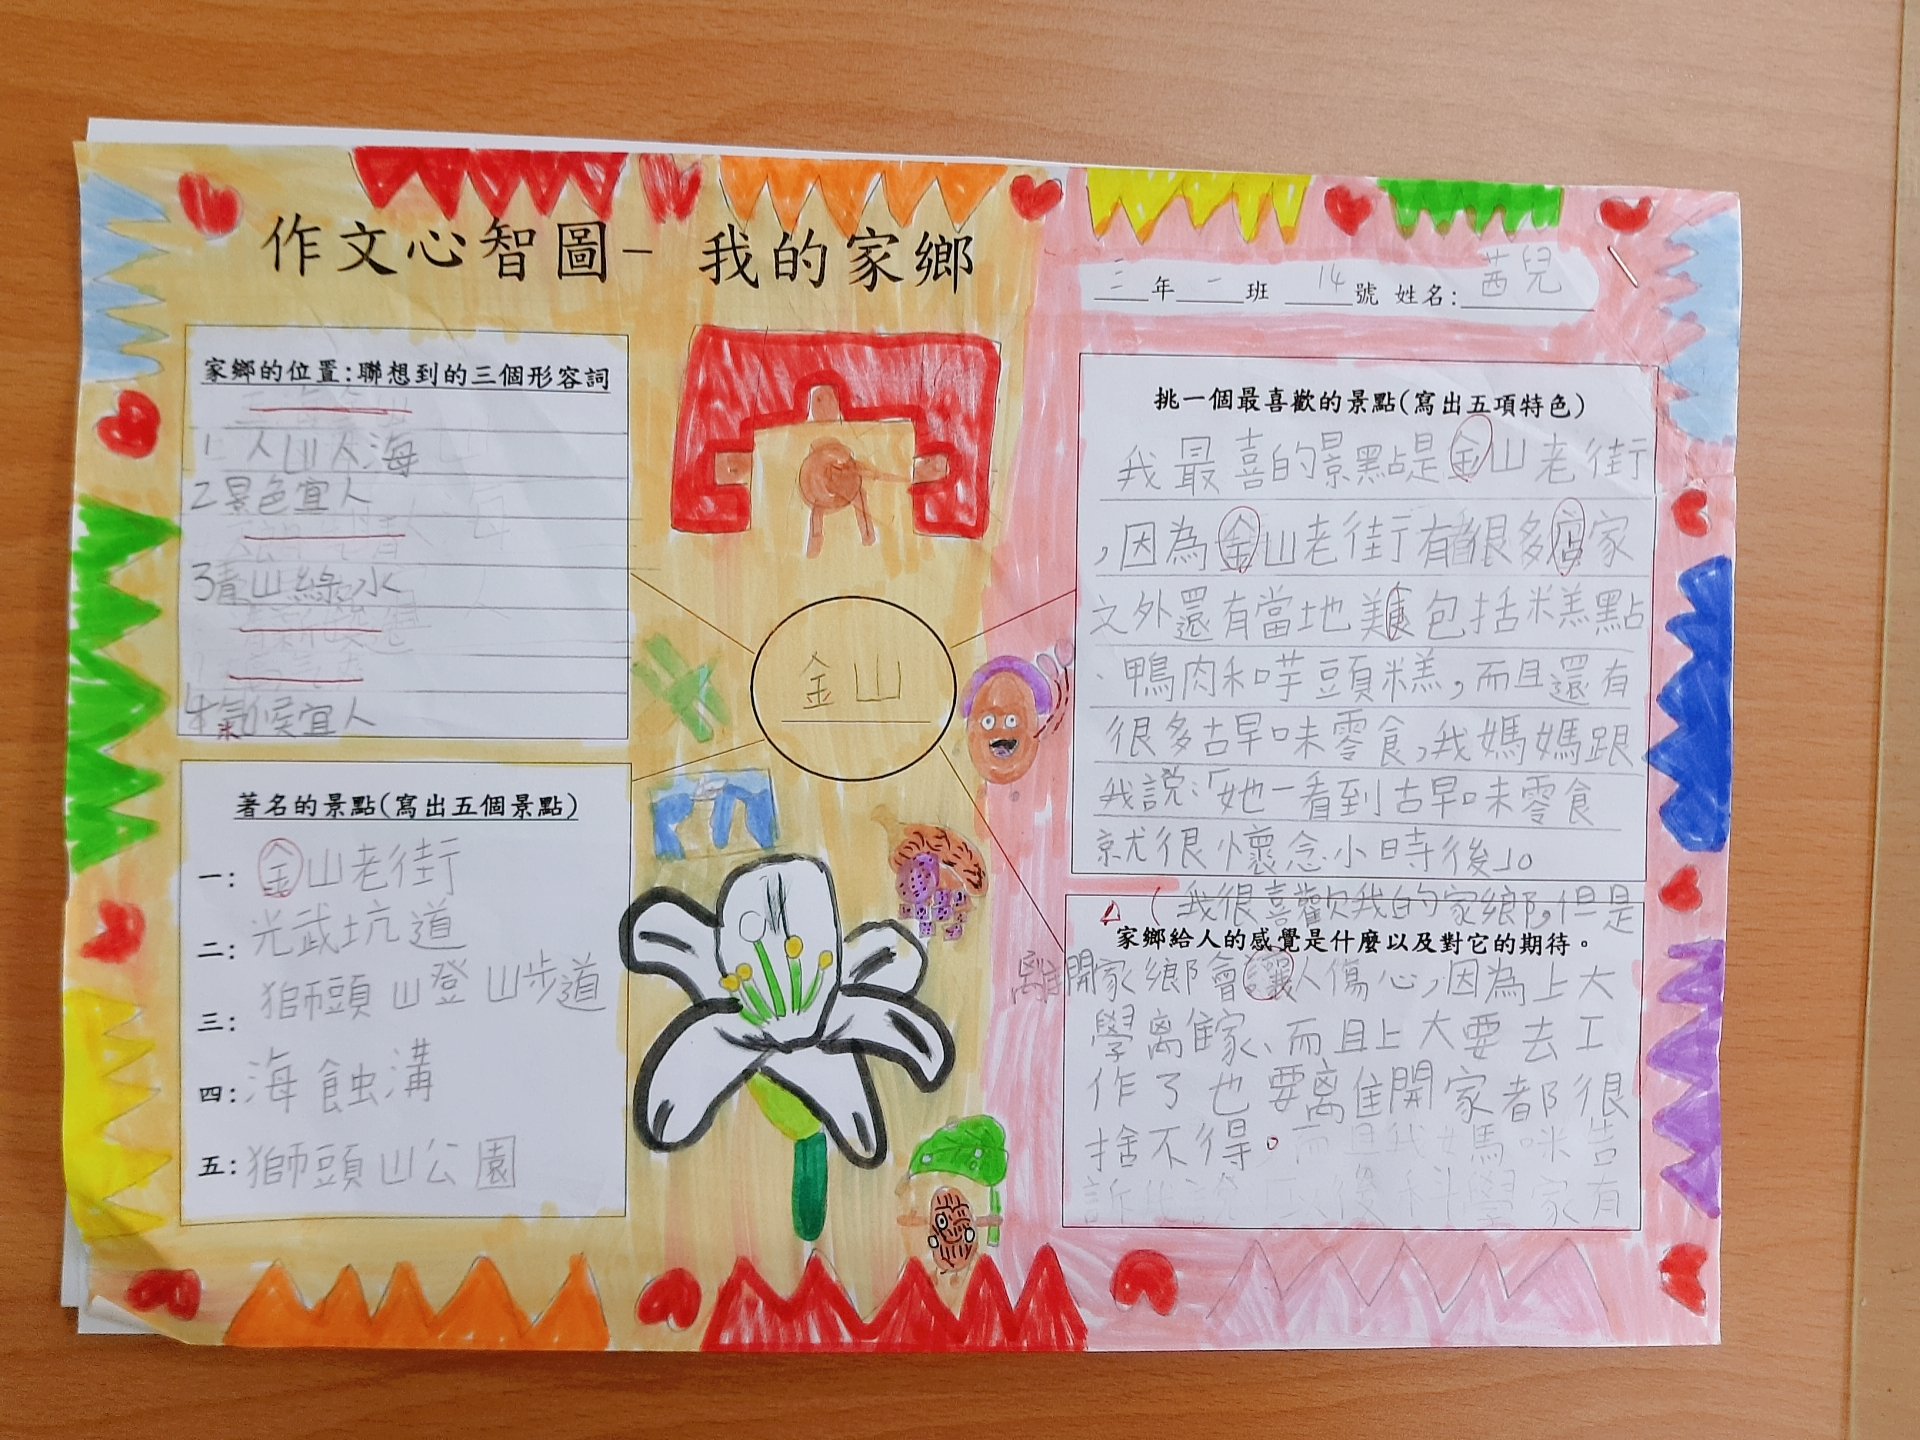 作文心智圖- 我的家鄉
三年一班 14號 姓名:茜兒
家鄉的位置:聯想到的三個形容詞
1 人山人海
2景色宜人
3青山綠水
4氣候宜人
著名的景點(寫出五個景點)
一: 金山老街
二: 光武坑道
三: 獅頭山登山步道
四: 海蝕溝
五: 獅頭山公園
金山
挑一個最喜歡的景點(寫出五項特色)
我最喜的景點是金山老街
,因為金山老街有很多店家
之外還有當地美食包括糕點
、鴨肉和芋頭糕,而且還有
很多古早味零食,我媽媽跟
我說:「她一看到古早味零食
就很懷念小時後」。
(我很喜歡我的家鄉,但是
家鄉給人的感覺是什麼以及對它的期待。
離開家鄉會讓人傷心,因為上大
學離家、而且上大要去工
作了也要離開家都很
捨不得。而且我媽咪告
訴我說